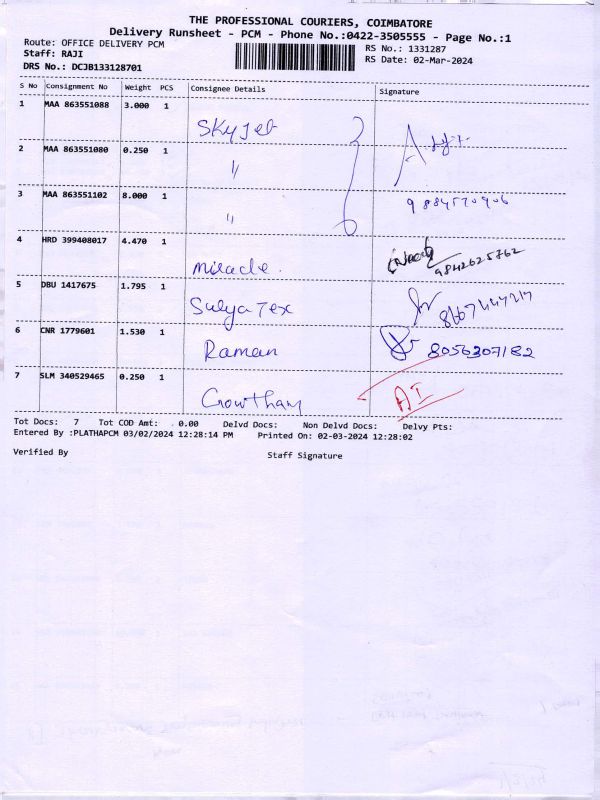 THE PROFESSIONAL COURIERS, COIMBATORE
Delivery Runsheet - PCM - Phone No.:0422-3505555 - Page No.:1
Route: OFFICE DELIVERY PCM
RS No.: 1331287
Staff: RAJI
RS Date: 02-Mar-2024
DRS No.: DCJB133128701
S No Consignment No Weight PCS Consignee Details Signature
1 MAA 863551088 3.000 1 Skyjet
2 MAA 863551080 0.250 1 "
3 MAA 863551102 8.000 1 " 9884570906
4 HRD 399408017 4.470 1 miracle. 9842625762
5 DBU 1417675 1.795 1 Surya Tex
6 CNR 1779601 1.530 1 Raman 8056307182
7 SLM 340529465 0.250 1 Gowtham AI
Tot Docs: 7 Tot COD Amt: 0.00 Delvd Docs: Non Delvd Docs: Delvy Pts:
Entered By :PLATHAPCM 03/02/2024 12:28:14 PM Printed On: 02-03-2024 12:28:02
Verified By Staff Signature